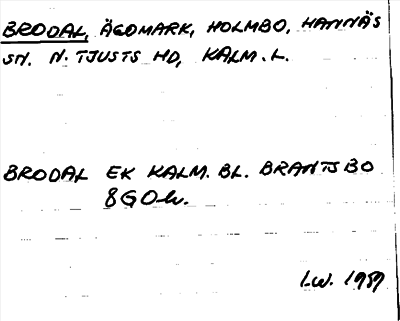 BRODAL, ÄGOMARK, HOLMBO, HANNÄS
SN. N. TJUSTS HD, KALM. L.
BRODAL EK KALM. BL. BRANTSBO
8G0h.
I.W. 1989